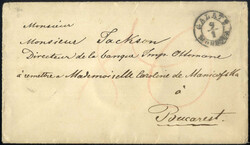 Monsieur
Monsieur Jackson
Directeur de la Banque Imp. Ottomane
à remettre à Mademoiselle Caroline de
à
Bucarest
GALATZ